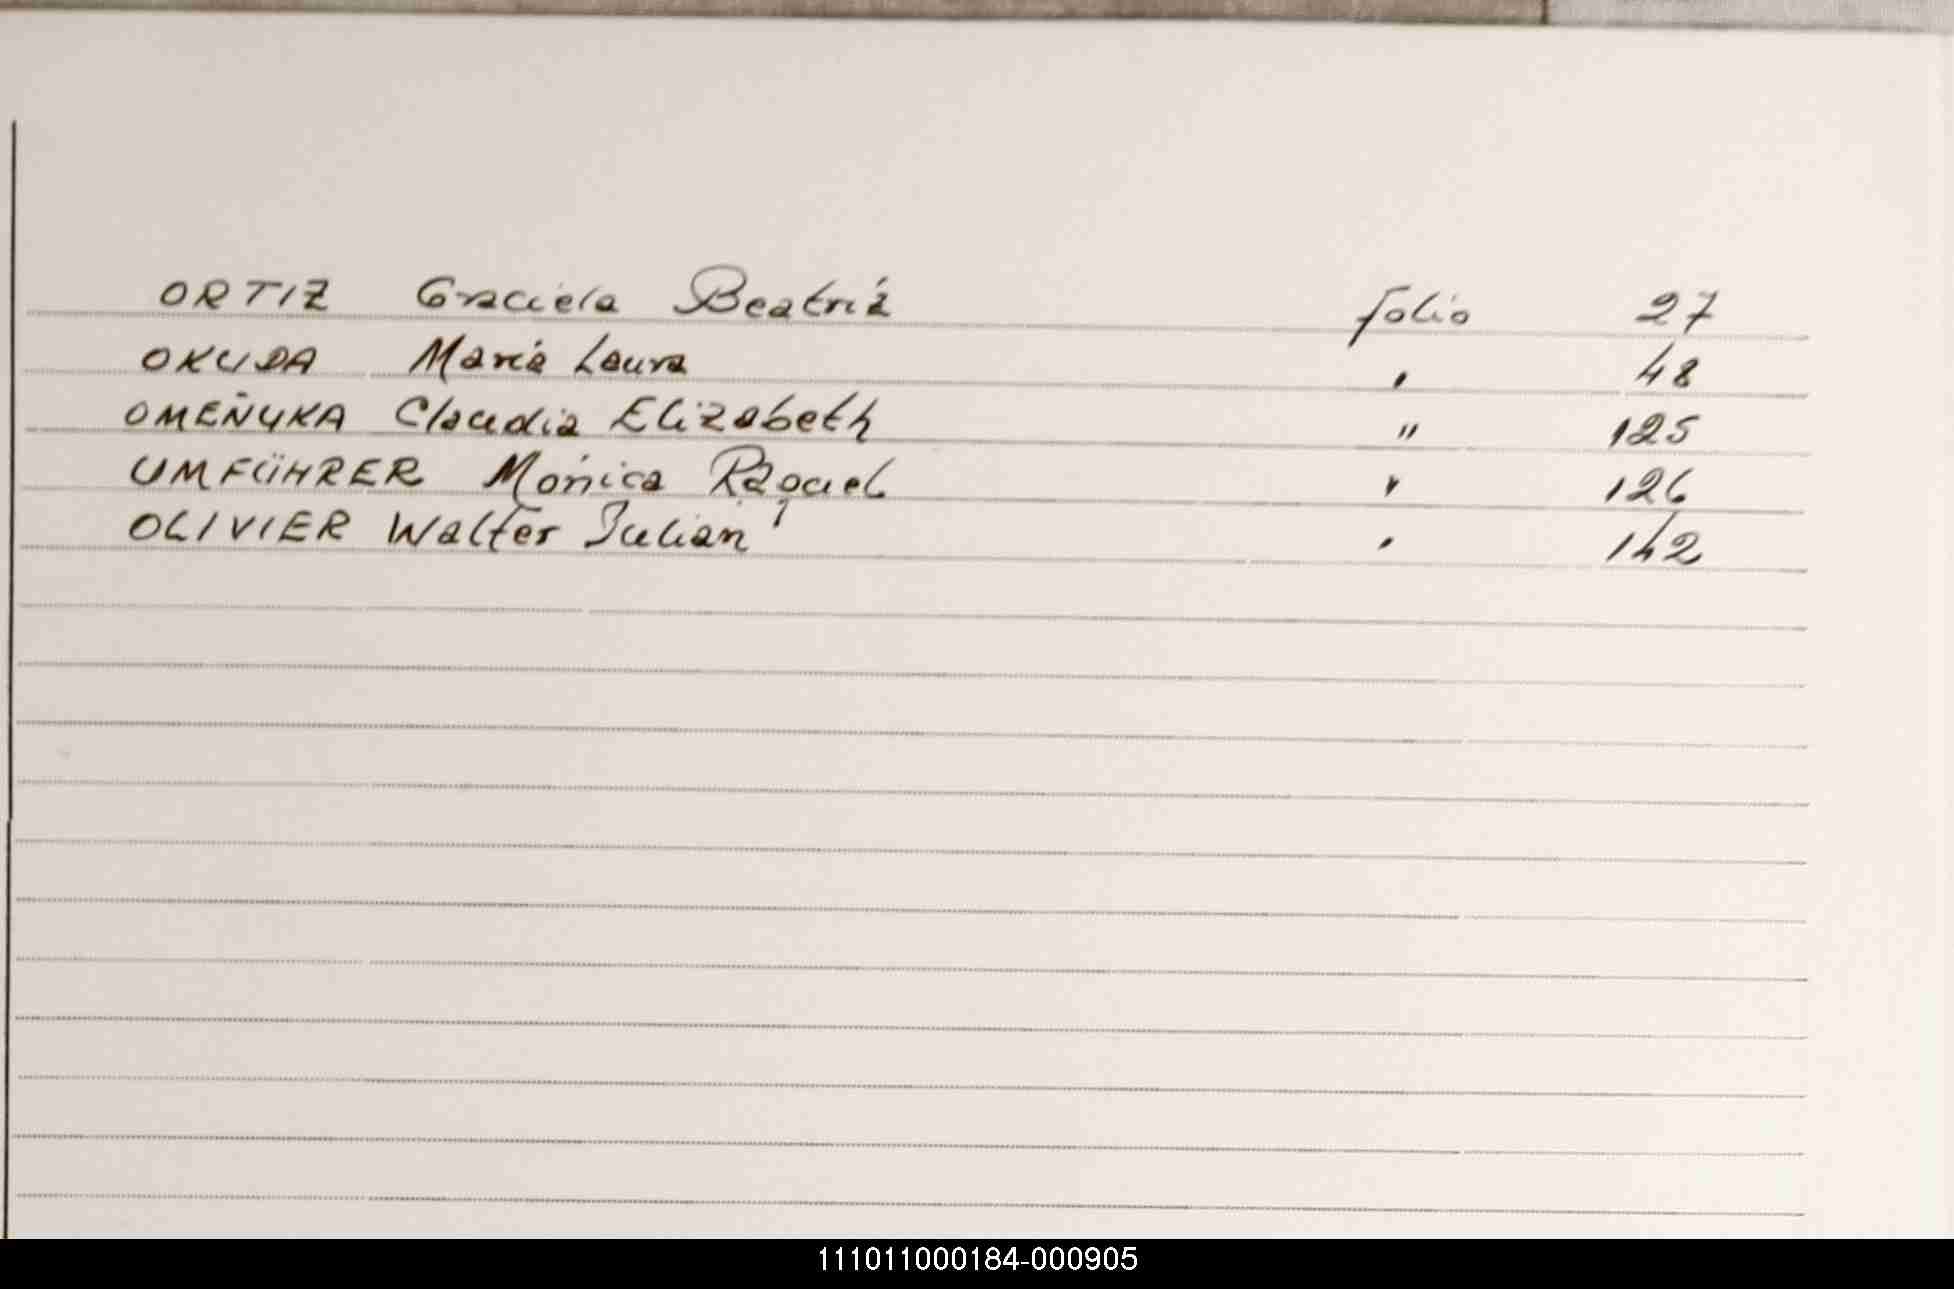 ORTIZ Graciela Beatriz folio 27
OKUDA María Laura " 48
OMEÑUKA Claudia Elizabeth " 125
UMFÜHRER Mónica Raquel " 126
OLIVIER Walter Julian " 142
111011000184-000905